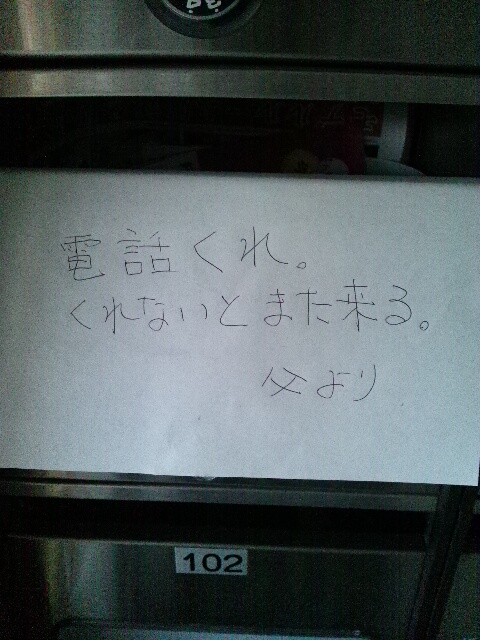 電話くれ。
くれないとまた来る。
父より
102